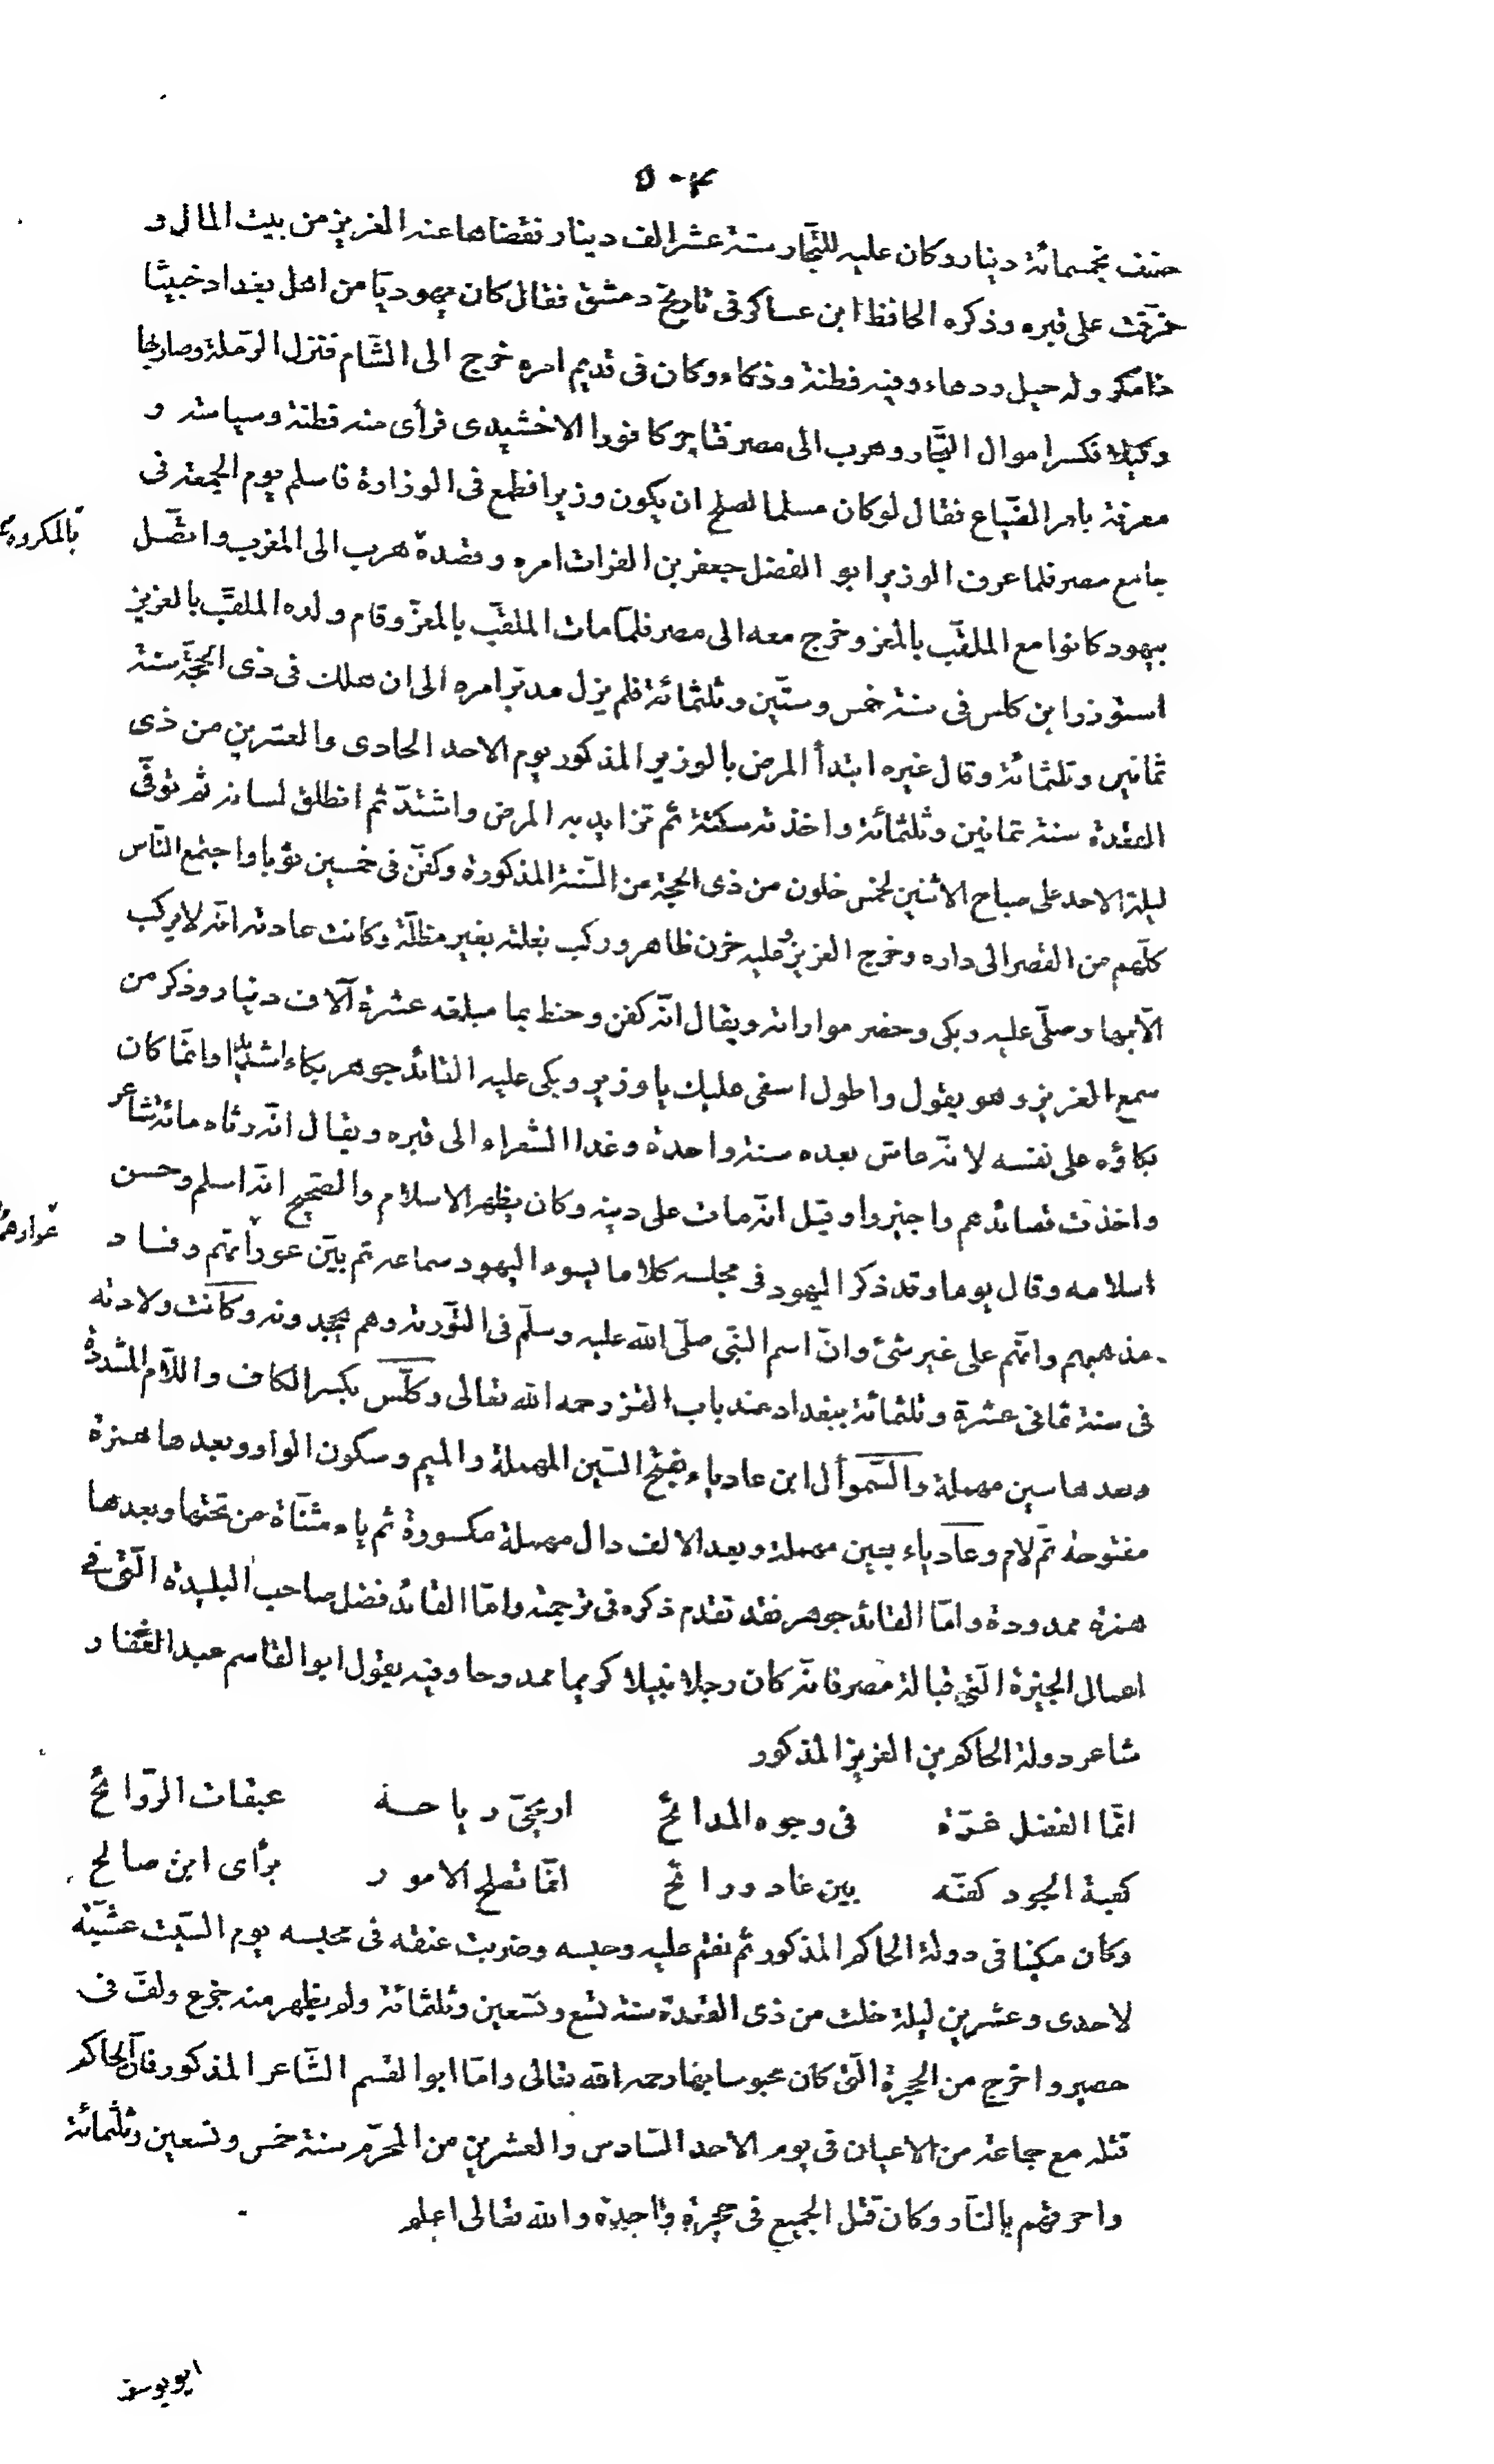 ٥٠٣
صنف بخمسمائة دينار وكان عليه للتجّار ستة عشر الف دينار فقضاها عنه العزيز من بيت المال و
فرّقت على قبره وذكره الحافظ ابن عساكر فى تاريخ دمشق فقال كان يهوديّا من اهل بغداد خبيثا
ذا مكر وله حيل ودهاء وفيه فطنة وذكاء وكان فى قديم امره خرج الى الشّام فنزل الرّملة وصار بها
وكيلا فكسر اموال التجّار وهرب الى مصر فتاجر كافورا الاخشيدى فرأى منه فطنة وسياسة و
معرفة بامر الضّياع فقال لو كان مسلما لصلح ان يكون وزيرا فطمع فى الوزارة فاسلم يوم الجمعة فى
جامع مصر فلما عرف الوزير ابو الفضل جعفر بن الفرات امره وقصدهٓ هرب الى المغرب واتّصل
بالمكروه
بيهود كانوا مع الملقّب بالمعز وخرج معه الى مصر فلمّا مات الملقّب بالمعزّ وقام ولده الملقّب بالعزيز
استوزر ابن كلس فى سنة خمس وستّين وثلثمائة فلم يزل مدبّر امره الى ان هلك فى ذى الحجّة سنة
ثمانين وثلثمائة وقال غيره ابتدأ المرض بالوزير المذكور يوم الاحد الحادى والعشرين من ذى
القعدة سنة ثمانين وثلثمائة واخذته سكتة ثم تزايد به المرض واشتدّ ثم انطلق لسانه ثم توفّى
ليلة الاحد على صباح الاثنين لخمس خلون من ذى الحجّة من السّنة المذكورة وكفّن فى خمسين ثوبا واجتمع النّاس
كلّهم من القصر الى داره وخرج العزيز وعليه حزن ظاهر وركب بغلته بغير مظلّة وكانت عادته انّه لا يركب
الّا بها وصلّى عليه وبكى وحضر مواراته ويقال انّه كفن وحنط بما مبلغه عشرة آلاف دينار وذكر من
سمع العزيز وهو يقول واطول اسفى عليك يا وزير وبكى عليه القائد جوهر بكاء شديدا وانّما كان
بكاؤه على نفسه لانّه عاش بعده سنة واحدة وغدا الشعراء الى قبره ويقال انّه رثاه مائة شاعر
واخذت قصائدهم واجيزوا وقيل انّه مات على دينه وكان يظهر الاسلام والصّحيح انّه اسلم وحسن
اسلامه وقال يوما وقد ذكر اليهود فى مجلسه كلاما يسوء اليهود سماعه ثم بيّن عوراتهم وفساد
عوارهم
مذهبهم وانّهم على غير شئ وانّ اسم النّبى صلّى الله عليه وسلّم فى التّورية وهم يجحدونه وكانت ولادته
فى سنة ثمانى عشرة وثلثمائة ببغداد عند باب القز رحمه الله تعالى وكلّس بكسر الكاف واللّام المشدّدة
وبعدها سين مهملة والسّموأل ابن عادياء بفتح السّين المهملة والميم وسكون الواو وبعدها همزة
مفتوحة ثم لام وعادياء بعين مهملة وبعد الالف دال مهملة مكسورة ثم ياء مثنّاة من تحتها وبعدها
همزة ممدودة وامّا القائد جوهر فقد تقدم ذكره فى ترجمته وامّا القائد فضل صاحب البليدة الّتى فى
اعمال الجيزة الّتى قبالة مصر فانّه كان رجلا نبيلا كريما ممدوحا وفيه يقول ابو القاسم عبد الغفار
شاعر دولة الحاكم بن العزيز المذكور
انّما الفضل غرّة فى وجوه المدائح اريحىّ رياحه عبقات الرّوائح
كعبة الجود كفّه بين غاد ورائح انّما تصلح الامور برأى ابن صالح
وكان مكينا فى دولة الحاكم المذكور ثم نقم عليه وحبسه وضربت عنقه فى محبسه يوم السّبت عشيّة
لاحدى وعشرين ليلة خلت من ذى القعدة سنة تسع وتسعين وثلثمائة ولم يظهر منه جزع ولفّ فى
حصير واخرج من الحجرة الّتى كان محبوسا بها رحمه الله تعالى وامّا ابو القسم الشّاعر المذكور فان الحاكم
قتله مع جماعة من الاعيان فى يوم الاحد السّادس والعشرين من المحرّم سنة خمس وتسعين وثلثمائة
واحرقهم بالنّار وكان قتل الجميع فى حجرة واحدة والله تعالى اعلم
ابو يوسف